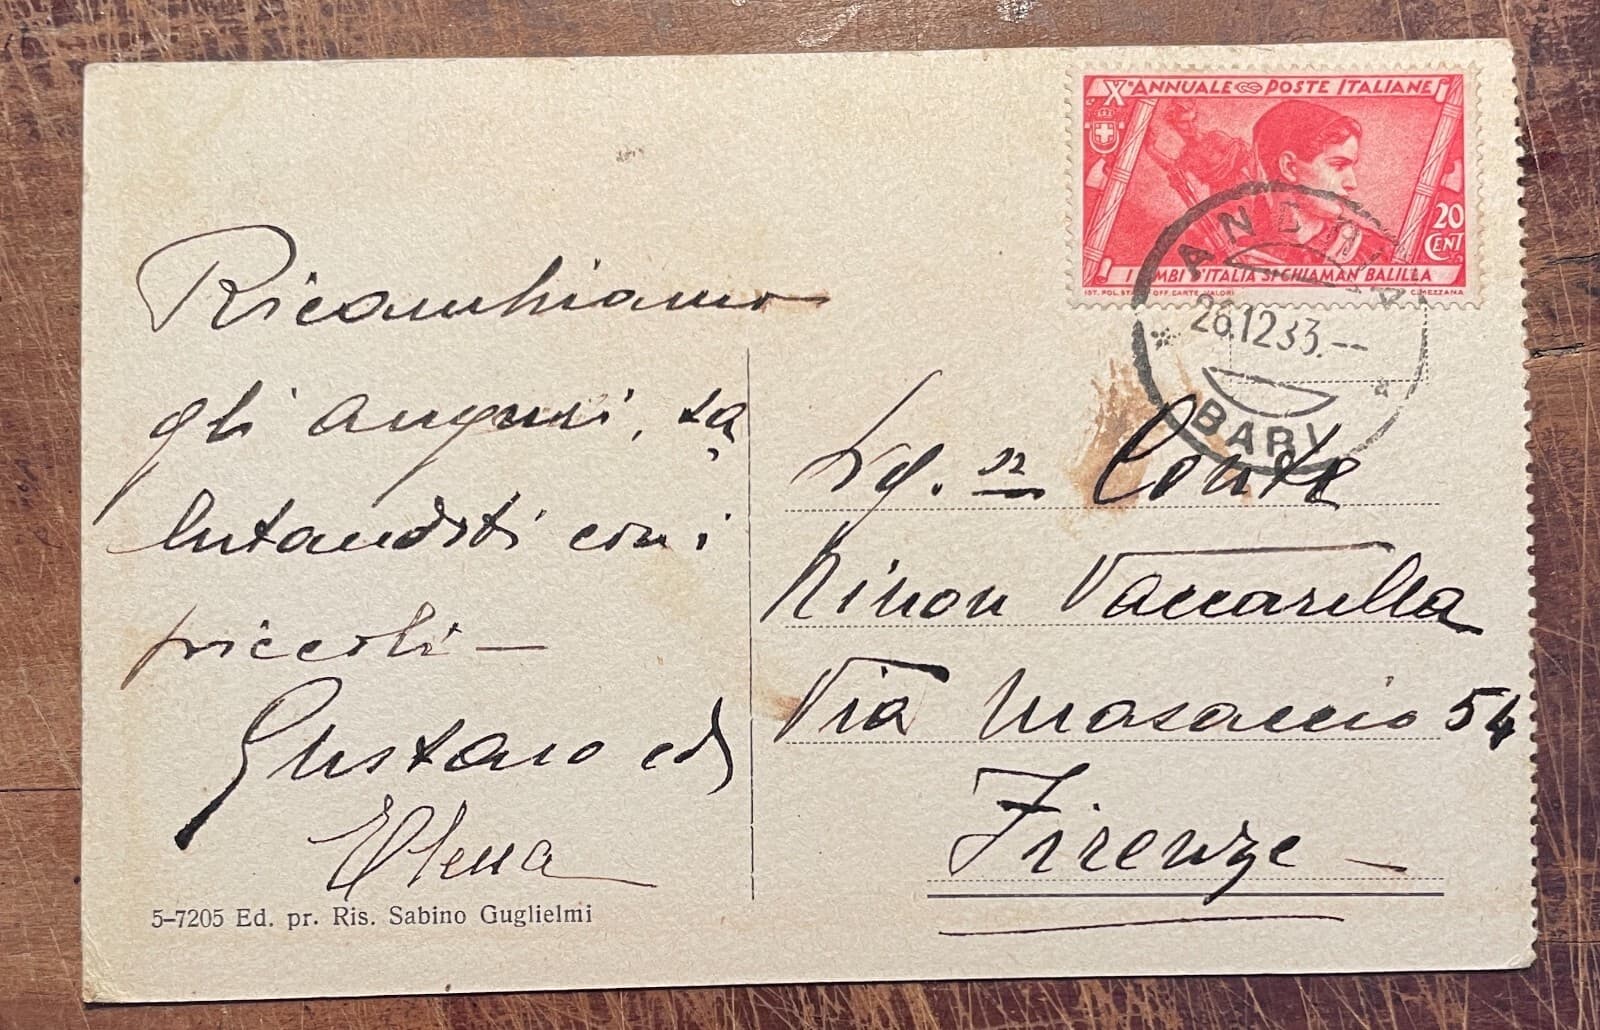 X° ANNUALE POSTE ITALIANE
20
CENT
I BIMBI D'ITALIA SI CHIAMAN BALILLA
IST. POL. STATO OFF. CARTE VALORI C. MEZZANA
ANDRIA
26.12 33.--
BARI
Ricambiamo
gli auguri, sa
lutandoti con i
piccoli —
Gustavo ed
Elena
Sig.na Conte
Ninon Vaccarella
Via Masaccio 54
Firenze
5-7205 Ed. pr. Ris. Sabino Guglielmi